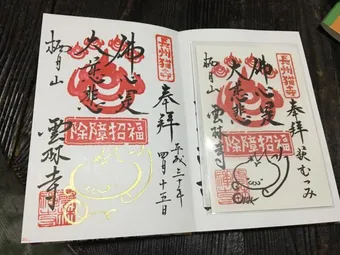 長州猫寺
奉拝
平成三十年
四月十五日
佛心愛
大慈悲
除障招福
栖月山
雲林寺
長州猫寺
奉拝
萩むつみ
佛心愛
大慈悲
除障招福
栖月山
雲林寺